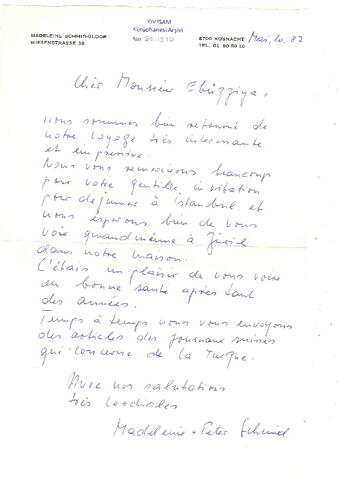 MADELEINE SCHMID-GLOOR
WIESENSTRASSE 38
TÜV İSAM
Kütüphanesi Arşivi
No
8700 KÜSNACHT
TEL. 01 90 50 10
Mai, 10. 87
Cher Monsieur Ebüzziya,
nous sommes bien retourné de
notre voyage très intéressante
et impressive.
Nous vous remercions beaucoup
pour votre gentille invitation
pour dejeuner à Istanbul et
nous espérons bien de vous
voir quand même à Zürich
dans notre maison.
C'étais un plaisir de vous voir
en bonne santé après tant
des années.
Temps à temps nous vous envoyons
des articles des journaux suisses
qui concerne de la Turquie.
Avec nos salutations
très cordiales
Madeleine + Peter Schmid